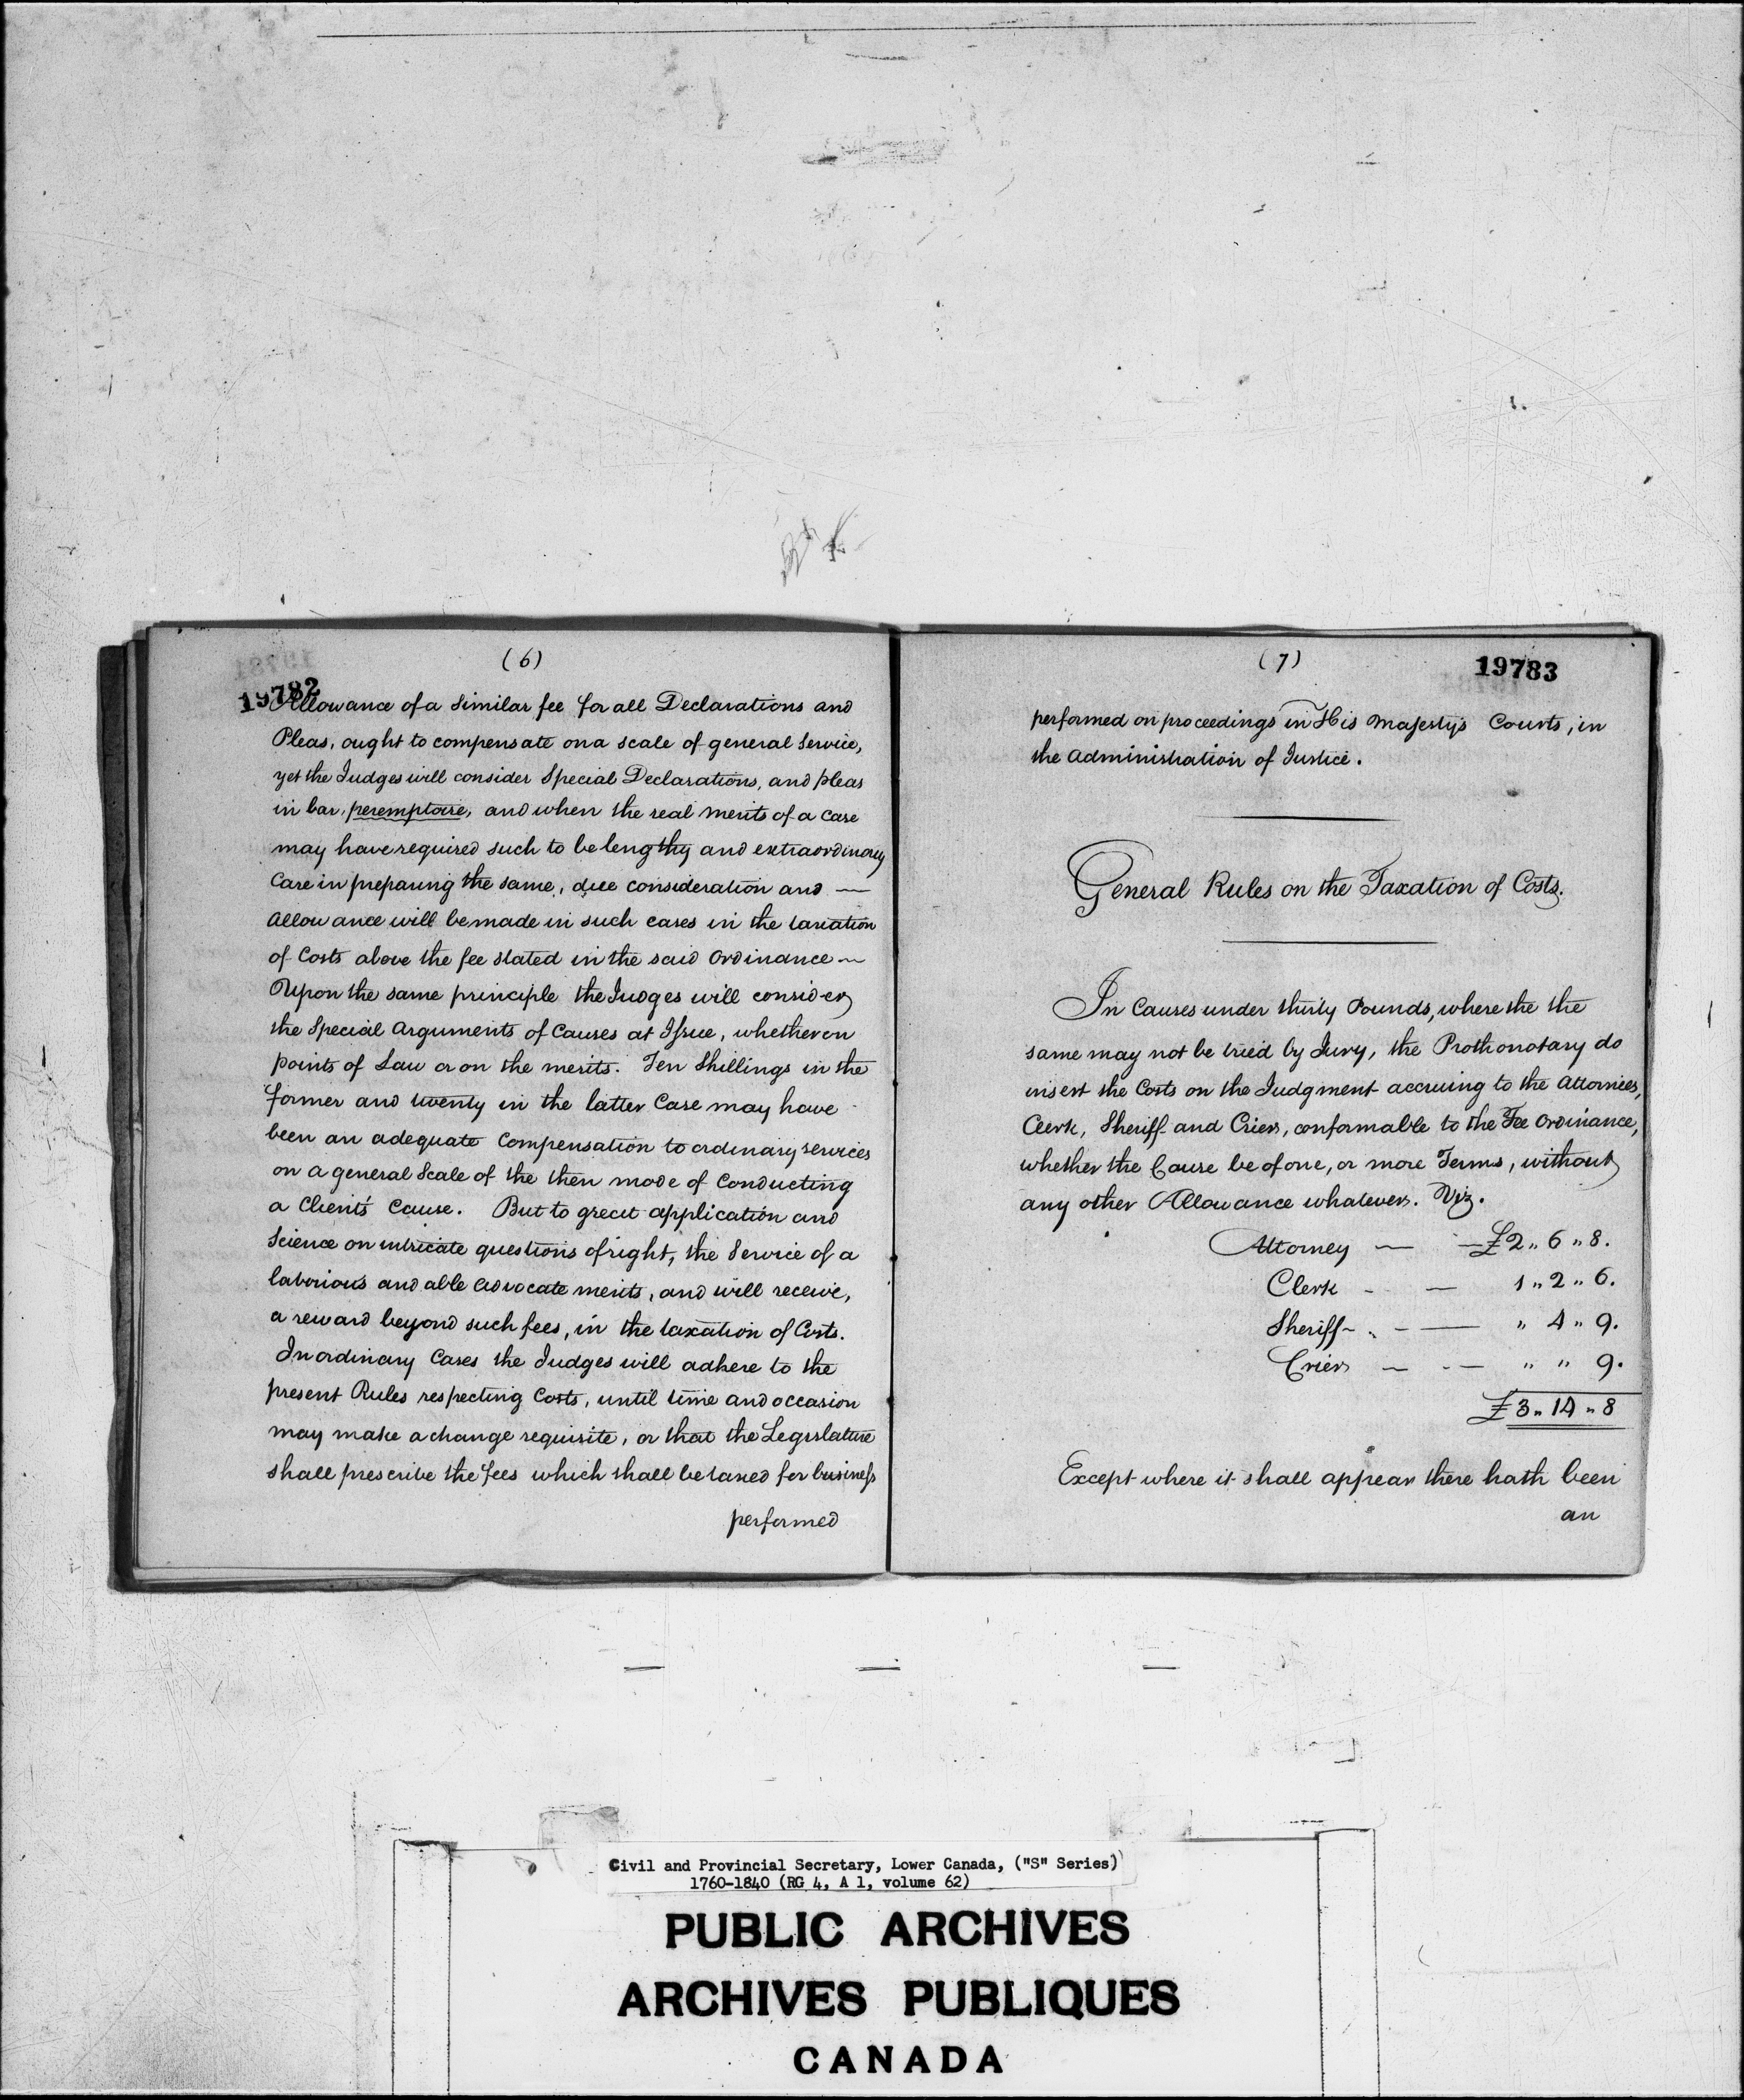 (6)
19782
Allowance of a similar fee for all Declarations and
Pleas, ought to compensate on a scale of general service,
yet the Judges will consider Special Declarations, and pleas
in bar, peremptoire, and when the real merits of a case
may have required such to be lengthy and extraordinary
care in preparing the same, due consideration and —
allowance will be made in such cases in the taxation
of Costs above the fee stated in the said Ordinance —
Upon the same principle the Judges will consider
the Special Arguments of Causes at Issue, whether on
points of Law or on the merits. Ten Shillings in the
former and twenty in the latter Case may have
been an adequate Compensation to ordinary services
on a general Scale of the then mode of Conducting
a Client's Cause. But to great application and
Science on intricate questions of right, the Service of a
laborious and able advocate merits, and will receive,
a reward beyond such fees, in the taxation of Costs.
In ordinary Cases the Judges will adhere to the
present Rules respecting Costs, until time and occasion
may make a change requisite, or that the Legislature
shall prescribe the fees which shall be taxed for business
performed
(7)
19783
performed on proceedings in His Majesty's Courts, in
the administration of Justice.
General Rules on the Taxation of Costs.
In Causes under thirty Pounds, where the the
same may not be tried by Jury, the Prothonotary do
insert the Costs on the Judgment accruing to the Attornies,
Clerk, Sheriff and Crier, conformable to the Fee Ordinance,
whether the Cause be of one, or more Terms, without
any other Allowance whatever. Viz.
Attorney — — £2 " 6 " 8.
Clerk - — 1 " 2 " 6.
Sheriff - . - — " 4 " 9.
Crier — - — " " 9.
£3 " 14 " 8
Except where it shall appear there hath been
an
Civil and Provincial Secretary, Lower Canada, ("S" Series)
1760-1840 (RG 4, A 1, volume 62)
PUBLIC ARCHIVES
ARCHIVES PUBLIQUES
CANADA